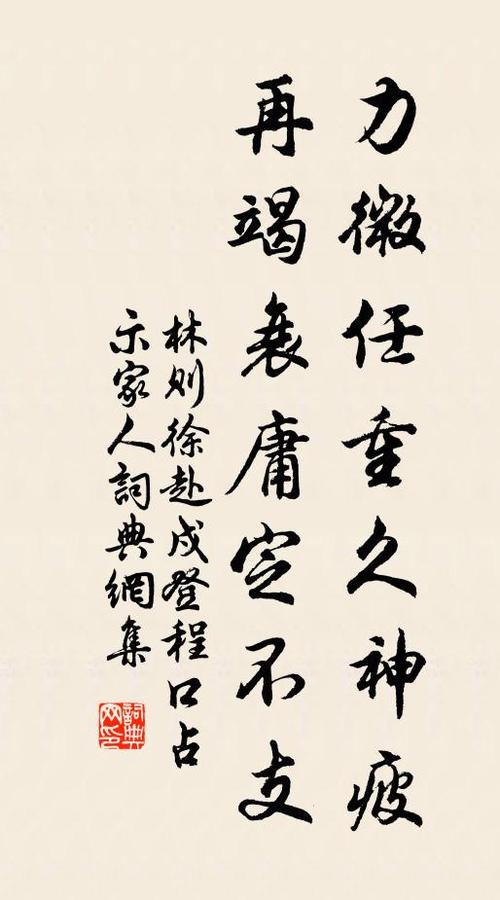 力微任重久神疲
再竭衰庸定不支
林则徐赴戍登程口占
示家人詞典網集
詞典网印